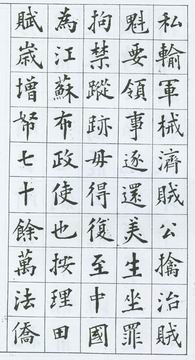 私輸軍械濟賊公擒治賊
魁要領事逐還美生坐罪
拘禁蹤跡毋得復至中國
為江蘇布政使也按理田
賦嵗增帑七十餘萬法僑